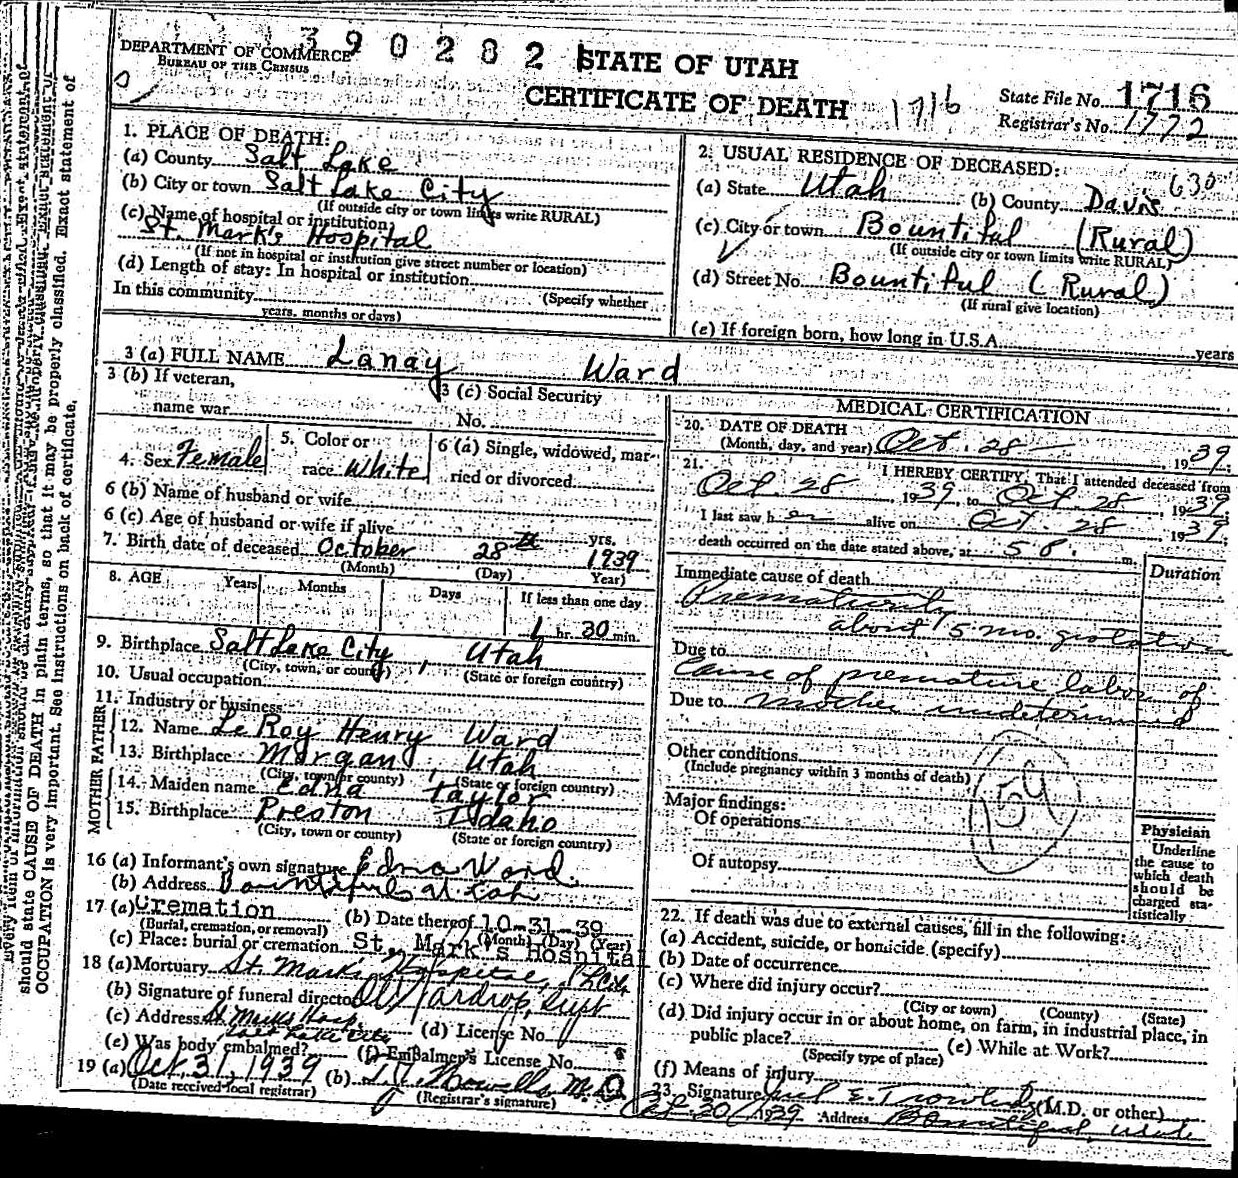 390282
DEPARTMENT OF COMMERCE
BUREAU OF THE CENSUS
STATE OF UTAH
CERTIFICATE OF DEATH
1716
State File No. 1716
Registrar's No. 1772
1. PLACE OF DEATH:
(a) County Salt Lake
(b) City or town Salt Lake City
(If outside city or town limits write RURAL)
(c) Name of hospital or institution
St. Mark's Hospital
(If not in hospital or institution give street number or location)
(d) Length of stay: In hospital or institution
(Specify whether
In this community
years, months or days)
2. USUAL RESIDENCE OF DECEASED:
630
(a) State Utah (b) County Davis
(c) City or town Bountiful (Rural)
(If outside city or town limits write RURAL)
(d) Street No. Bountiful (Rural)
(If rural give location)
(e) If foreign born, how long in U.S.A. years
3 (a) FULL NAME Lanay Ward
3 (b) If veteran,
name war
3 (c) Social Security
No.
4. Sex Female
5. Color or
race White
6 (a) Single, widowed, mar-
ried or divorced
6 (b) Name of husband or wife
6 (c) Age of husband or wife if alive yrs.
7. Birth date of deceased October 28th 1939
(Month) (Day) Year)
8. AGE Years Months Days If less than one day
1 hr. 30 min.
9. Birthplace Salt Lake City, Utah
(City, town, or county) (State or foreign country)
10. Usual occupation
11. Industry or business
FATHER
12. Name Le Roy Henry Ward
13. Birthplace Morgan, Utah
(City, town or county) (State or foreign country)
MOTHER
14. Maiden name Edna Taylor
15. Birthplace Preston Idaho
(City, town or county) (State or foreign country)
16 (a) Informant's own signature Edna Ward.
(b) Address Bountiful Utah
17 (a) Cremation (b) Date thereof 10-31-39
(Burial, cremation, or removal) (Month) (Day) (Year)
(c) Place: burial or cremation St. Mark's Hospital
18 (a) Mortuary St. Marks Hospital,
(b) Signature of funeral director Wardrop, Supt
(c) Address St Marks Hosp. (d) License No.
Salt Lake City
(e) Was body embalmed? (f) Embalmer's License No.
19 (a) Oct. 31, 1939 (b) M.D.
(Date received local registrar) (Registrar's signature)
MEDICAL CERTIFICATION
20. DATE OF DEATH
(Month, day, and year) Oct. 28 1939.
21. I HEREBY CERTIFY, That I attended deceased from
Oct. 28, 1939, to Oct. 28, 1939
I last saw her alive on Oct. 28 1939;
death occurred on the date stated above, at 5 P. m.
Duration
Immediate cause of death
Prematurity
about 5 mo. gestation
Due to
Cause of premature labor of
Due to mother undetermined
Other conditions
(Include pregnancy within 3 months of death)
159
Major findings:
Of operations
Of autopsy
Physician
Underline
the cause to
which death
should be
charged sta-
tistically
22. If death was due to external causes, fill in the following:
(a) Accident, suicide, or homicide (specify)
(b) Date of occurrence
(c) Where did injury occur?
(City or town) (County) (State)
(d) Did injury occur in or about home, on farm, in industrial place, in
public place? (e) While at Work?
(Specify type of place)
(f) Means of injury
23. Signature E. Trowbridge (M.D. or other)
1939 Address Bountiful, Utah
should state CAUSE OF DEATH in plain terms, so that it may be properly classified. Exact statement of
OCCUPATION is very important. See instructions on back of certificate.